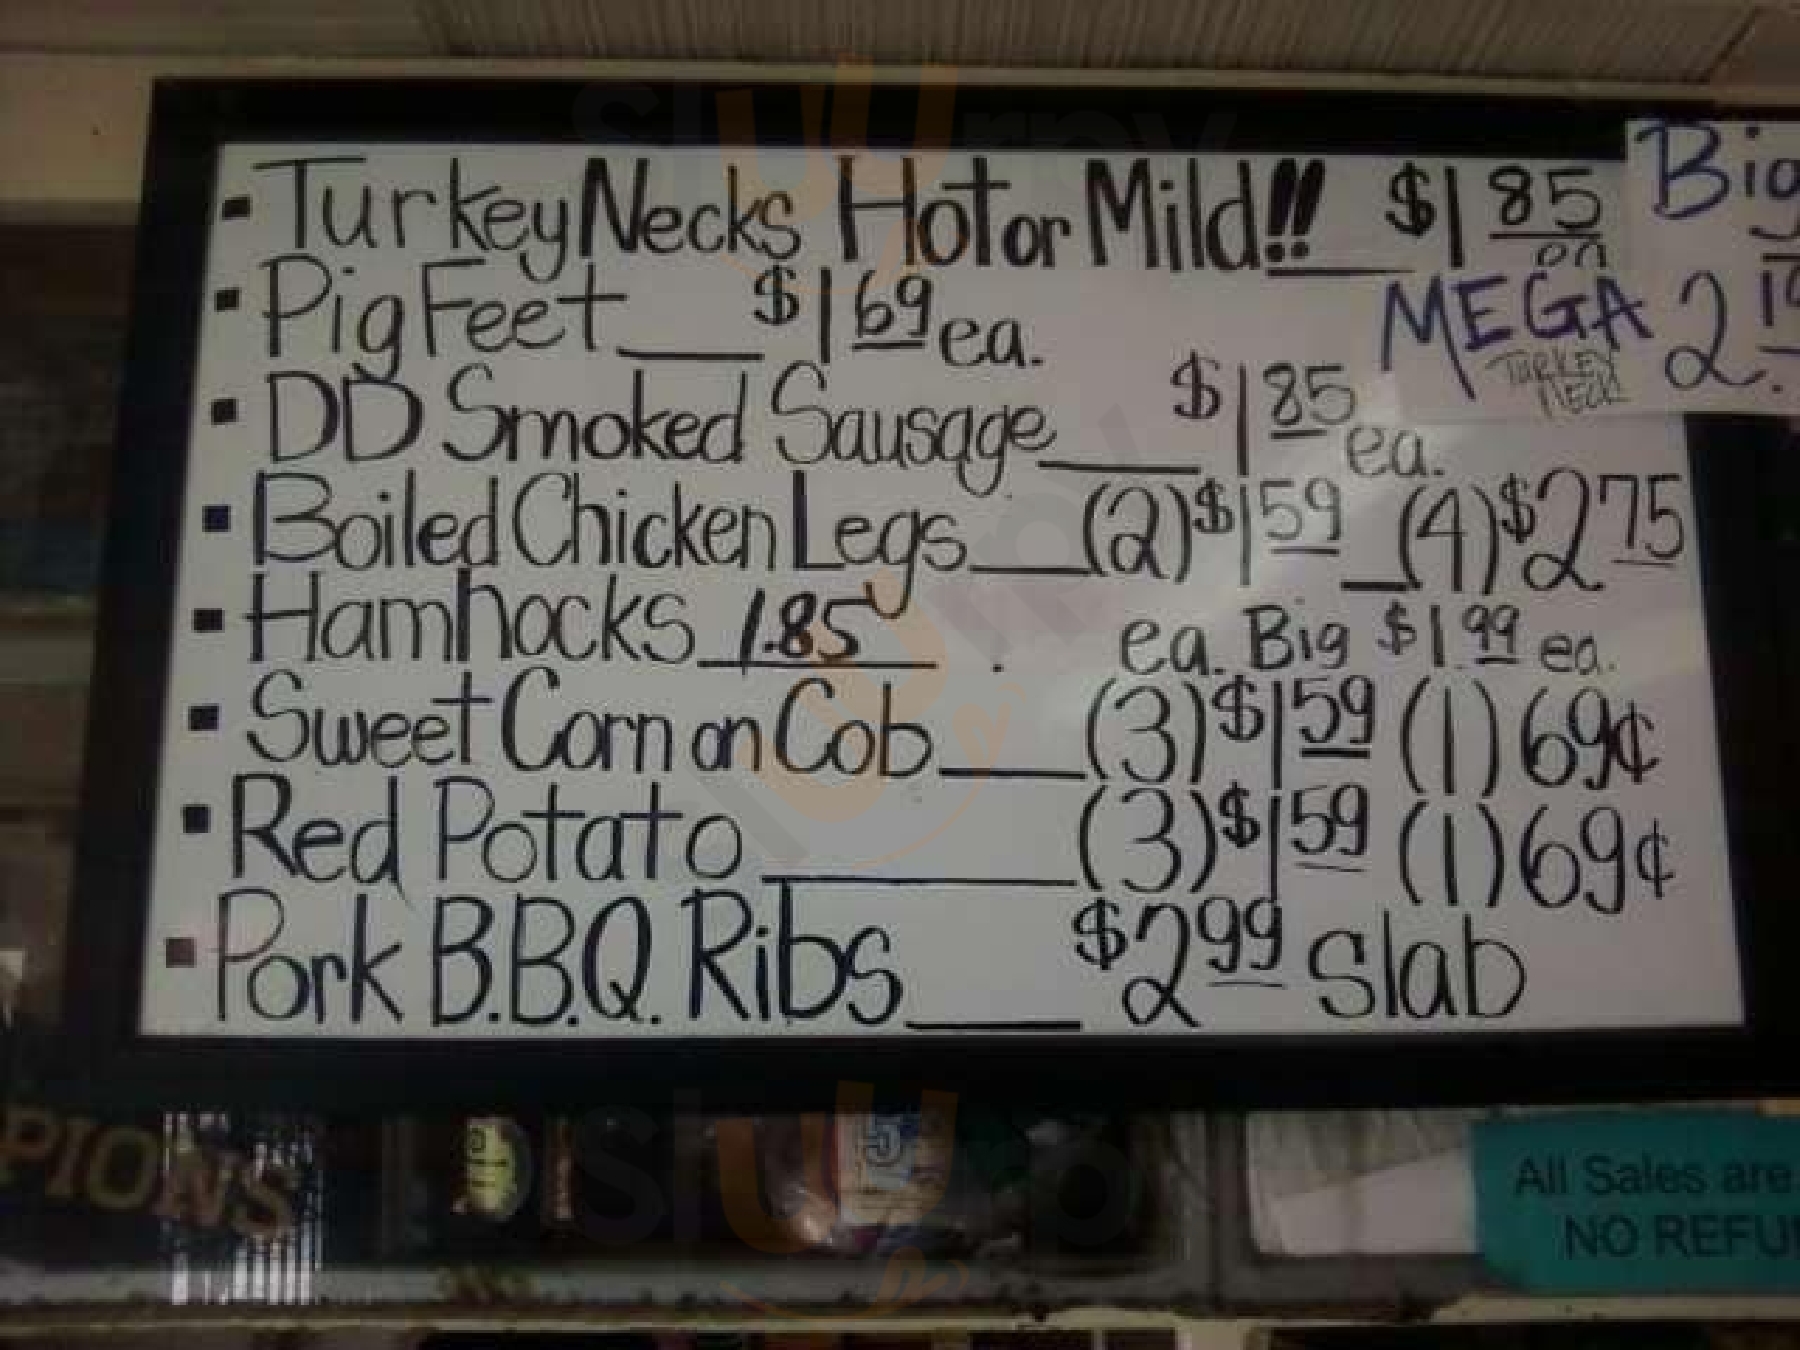 ▪ Turkey Necks Hot or Mild!! $1 85 ea
▪ Pig Feet ___ $1 69 ea.
MEGA TURKEY NECK
Big
2.
▪ DD Smoked Sausage ___ $1 85 ea.
▪ Boiled Chicken Legs ___ (2) $1 59 _ (4) $2 75
▪ Hamhocks 1.85 . ea. Big $1.99 ea.
▪ Sweet Corn on Cob ___ (3) $1 59 (1) 69¢
▪ Red Potato ___ (3) $1 59 (1) 69¢
▪ Pork B.B.Q. Ribs ___ $2 99 Slab
PIONS
5
All Sales are
NO REFU
slurpy
slurpy
slurpy